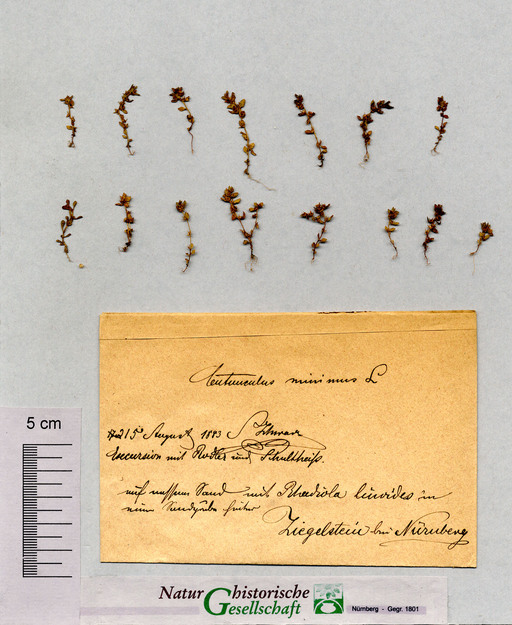 Centunculus minimus L
15 August 1883 S Schwarz
Excursion mit Rodler und Schultheiß.
auf nassem Sand mit Rhadiola linoides in
einer Sandgrube hinter
Ziegelstein bei Nürnberg
5 cm
Naturhistorische
Gesellschaft
Nürnberg - Gegr. 1801